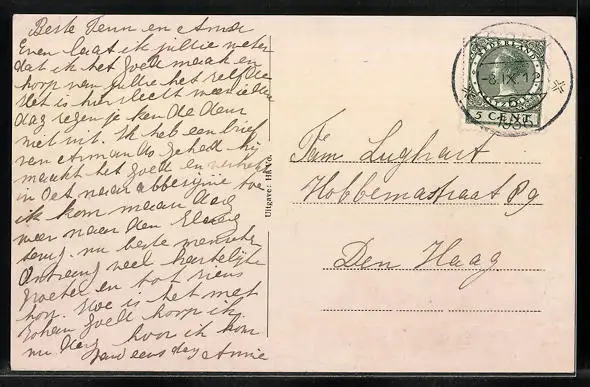 Beste Teun en Anna
Even laat ik jullie weten
dat ik het goed maak en
hoop van jullie het zelfde
Het is hier slecht weer iedere
dag regen je kan de deur
niet uit. Ik heb een brief
van Arman do gehad hij
maakt het goed en
in Oct naar toe
ik kom maan dag
weer naar den
terug. nu beste menschen
Ontvang veel hartelijke
groeten en tot ziens
hoor. Hoe is het met
Johan goed hoop ik.
nu dag hoor ik kom
eens dag Annie
Uitgave: H
NEDERLAND
5 CENT
-8.IX.1
193
Fam Lughart
Hobbemastraat 89
Den Haag